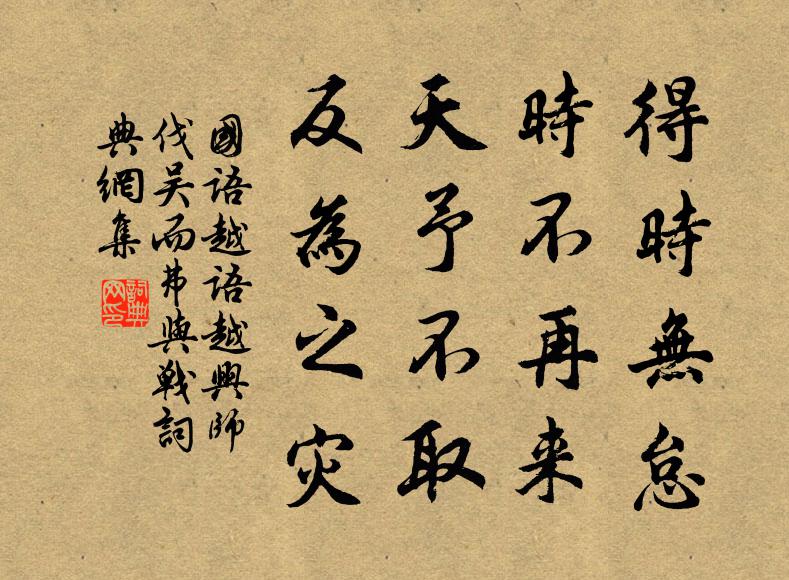 得時無怠
時不再来
天予不取
反為之灾
國語越語越興師
伐吴而弗與戰詞
典網集
詞典
网印